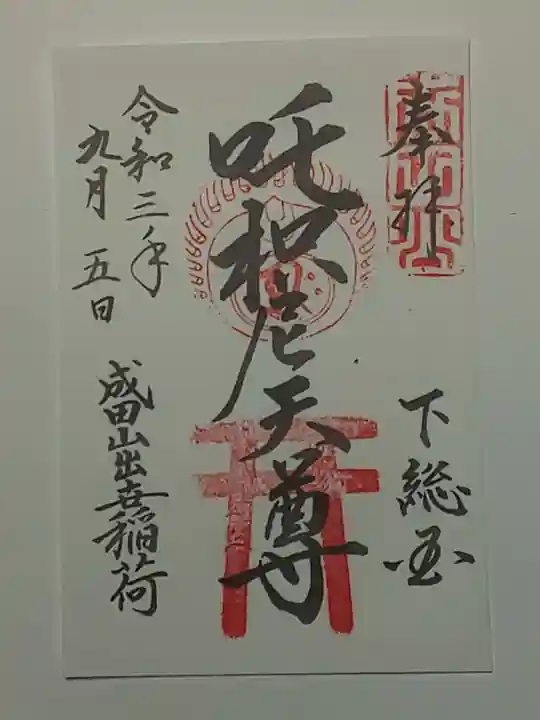 奉拝
下総国
吒枳尼天尊
令和三年
九月五日
成田山出世稲荷